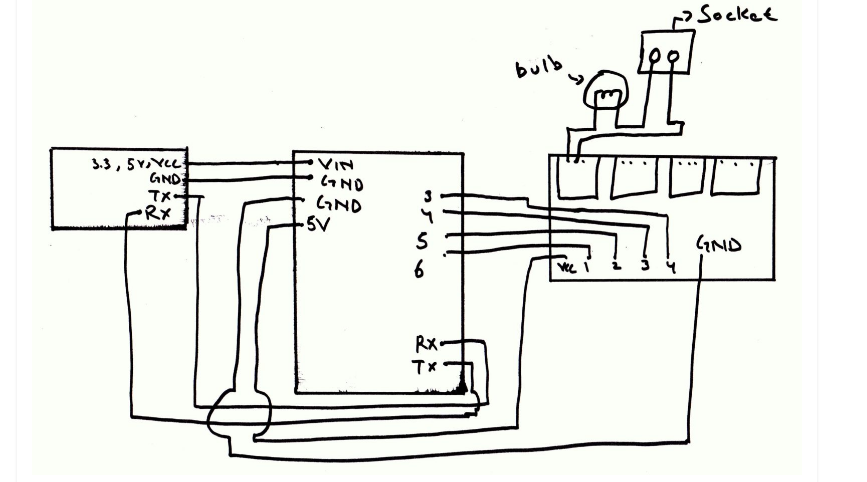 Socket
bulb
3.3, 5V, VCC
GND
Tx
Rx
VIN
GND
GND
5V
3
4
5
6
Rx
Tx
GND
VCC 1 2 3 4